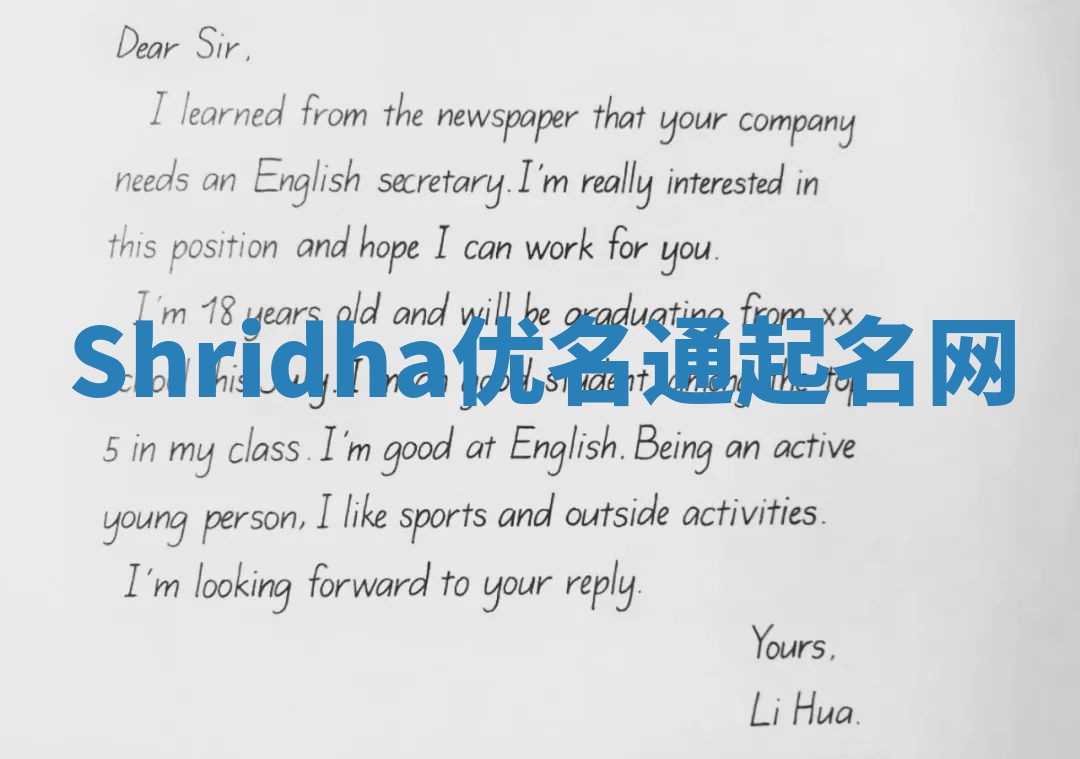 Dear Sir,
I learned from the newspaper that your company
needs an English secretary. I'm really interested in
this position and hope I can work for you.
I'm 18 years old and will be graduating from xx
Shridha优名通起名网
school this July. I'm a good student among the top
5 in my class. I'm good at English. Being an active
young person, I like sports and outside activities.
I'm looking forward to your reply.
Yours,
Li Hua.